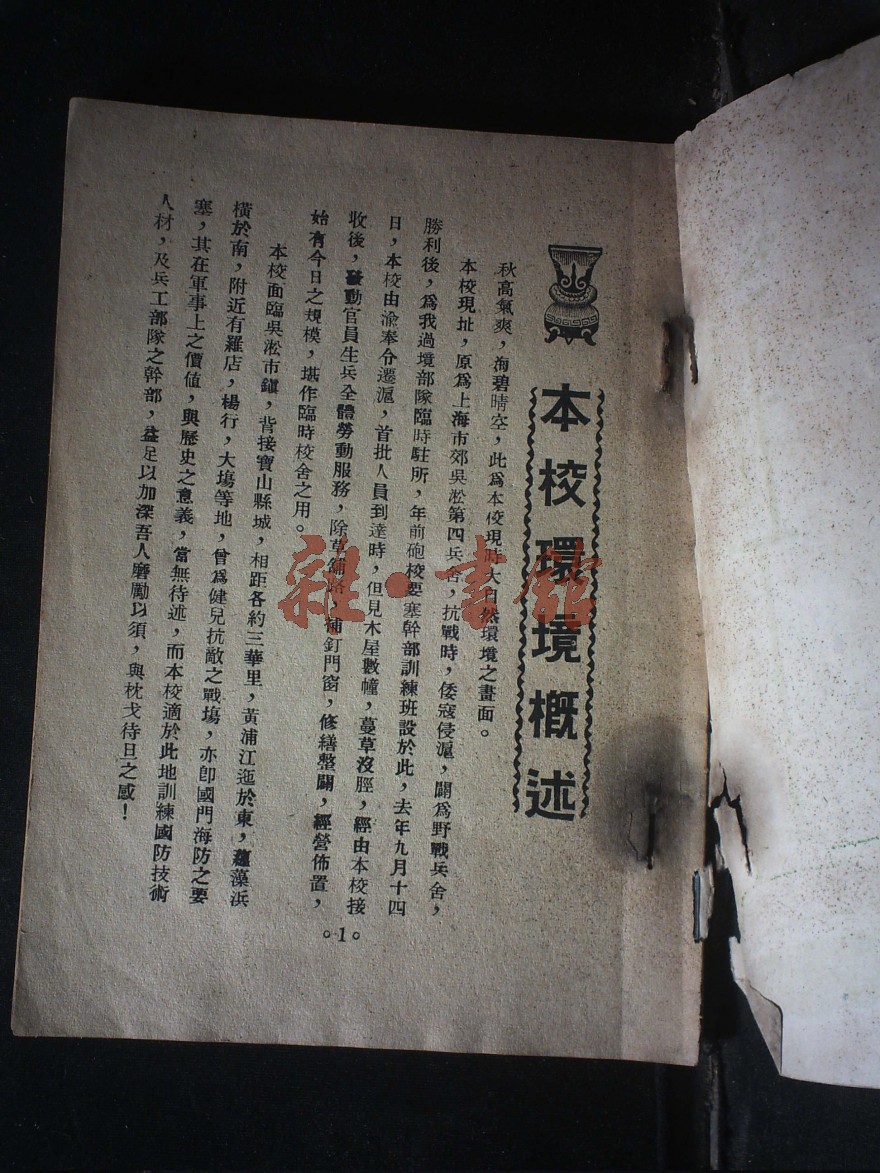 本校環境概述
秋高氣爽，海碧晴空，此爲本校現時大自然環境之畫面。
本校現址，原爲上海市郊吳淞第四兵舍，抗戰時，倭寇侵滬，闢爲野戰兵舍，
勝利後，爲我過境部隊臨時駐所，年前砲校要塞幹部訓練班設於此，去年九月十四
日，本校由渝奉令遷滬，首批人員到達時，但見木屋數幢，蔓草沒脛，經由本校接
收後，發動官員生兵全體勞動服務，除草鋪路，補釘門窗，修繕整闢，經營佈置，
始有今日之規模，堪作臨時校舍之用。
本校面臨吳淞市鎭，背接寶山縣城，相距各約三華里，黃浦江迤於東，蘊藻浜
橫於南，附近有羅店，楊行，大塲等地，曾爲健兒抗敵之戰塲，亦卽國門海防之要
塞，其在軍事上之價値，與歷史之意義，當無待述，而本校適於此地訓練國防技術
人材，及兵工部隊之幹部，益足以加深吾人磨勵以須，與枕戈待旦之感！
。1。
雜·書館